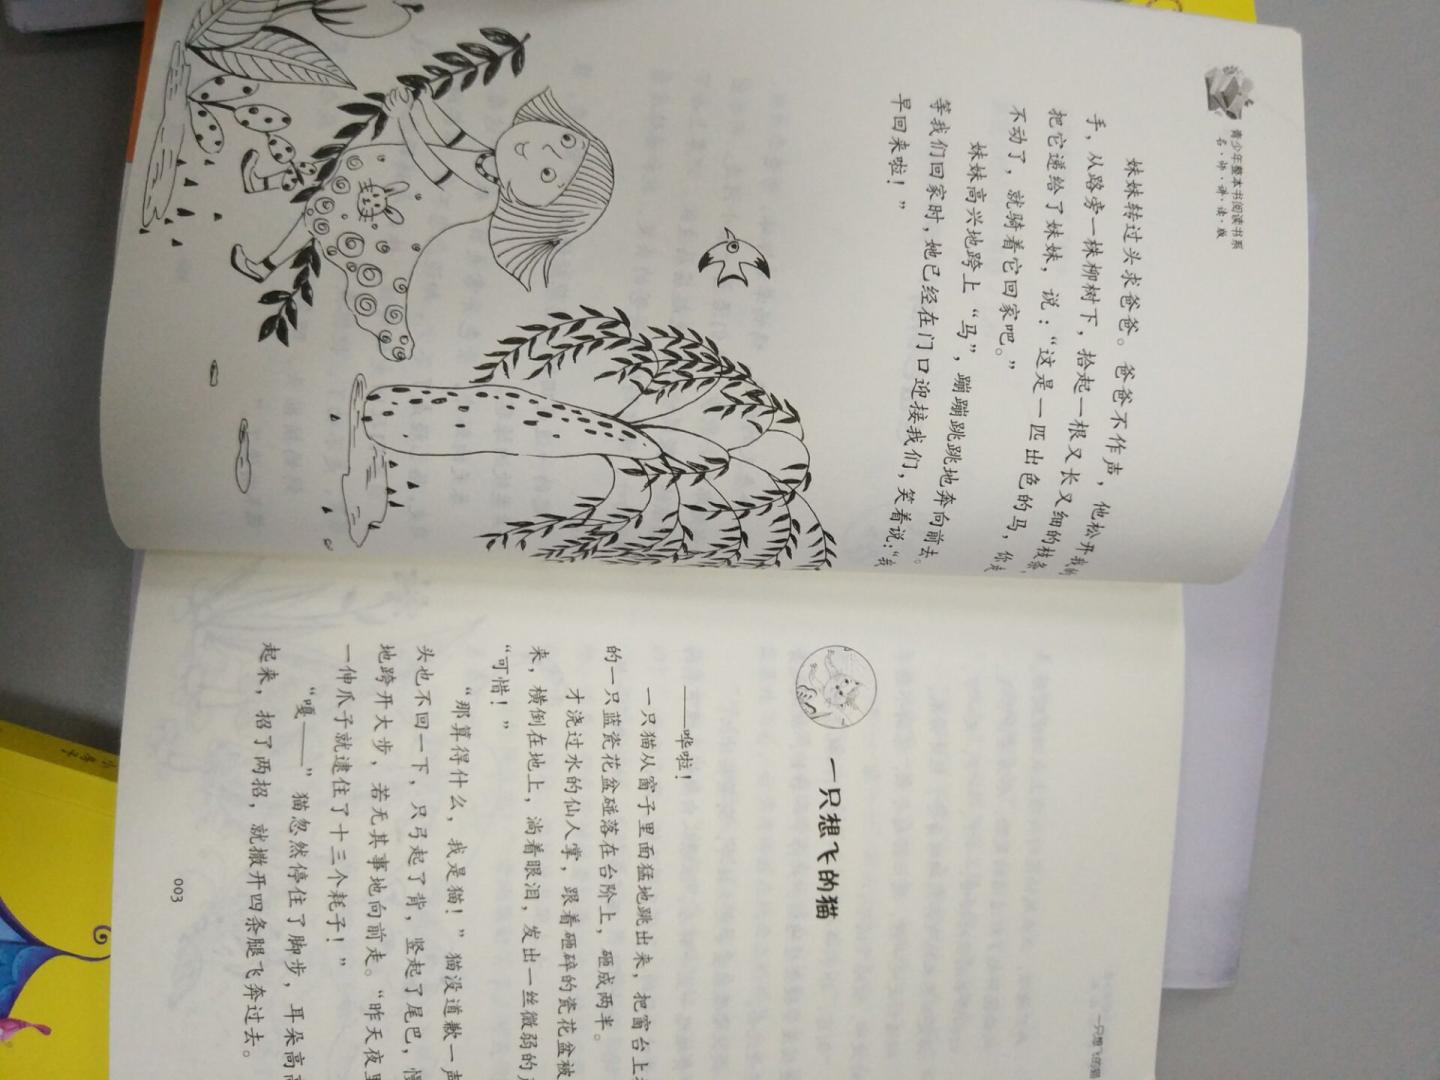 青少年整本书阅读书系
名·师·讲·读·版
妹妹转过头求爸爸。爸爸不作声，他松开我的
手，从路旁一株柳树下，拾起一根又长又细的枝条，
把它递给了妹妹，说：“这是一匹出色的马，你走
不动了，就骑着它回家吧。”
妹妹高兴地跨上“马”，蹦蹦跳跳地奔向前去。
等我们回家时，她已经在门口迎接我们，笑着说：“我
早回来啦！”
一只想飞的猫
一只想飞的猫
——哗啦！
一只猫从窗子里面猛地跳出来，把窗台上
的一只蓝瓷花盆碰落在台阶上，砸成两半。
才浇过水的仙人掌，跟着砸碎的瓷花盆被
来，横倒在地上，淌着眼泪，发出一丝微弱的
“可惜！”
“那算得什么，我是猫！”猫没道歉一声
头也不回一下，只弓起了背，竖起了尾巴，慢
地跨开大步，若无其事地向前走。“昨天夜里
一伸爪子就逮住了十三个耗子！”
“嘎——”猫忽然停住了脚步，耳朵高高
起来，招了两招，就撒开四条腿飞奔过去。
003